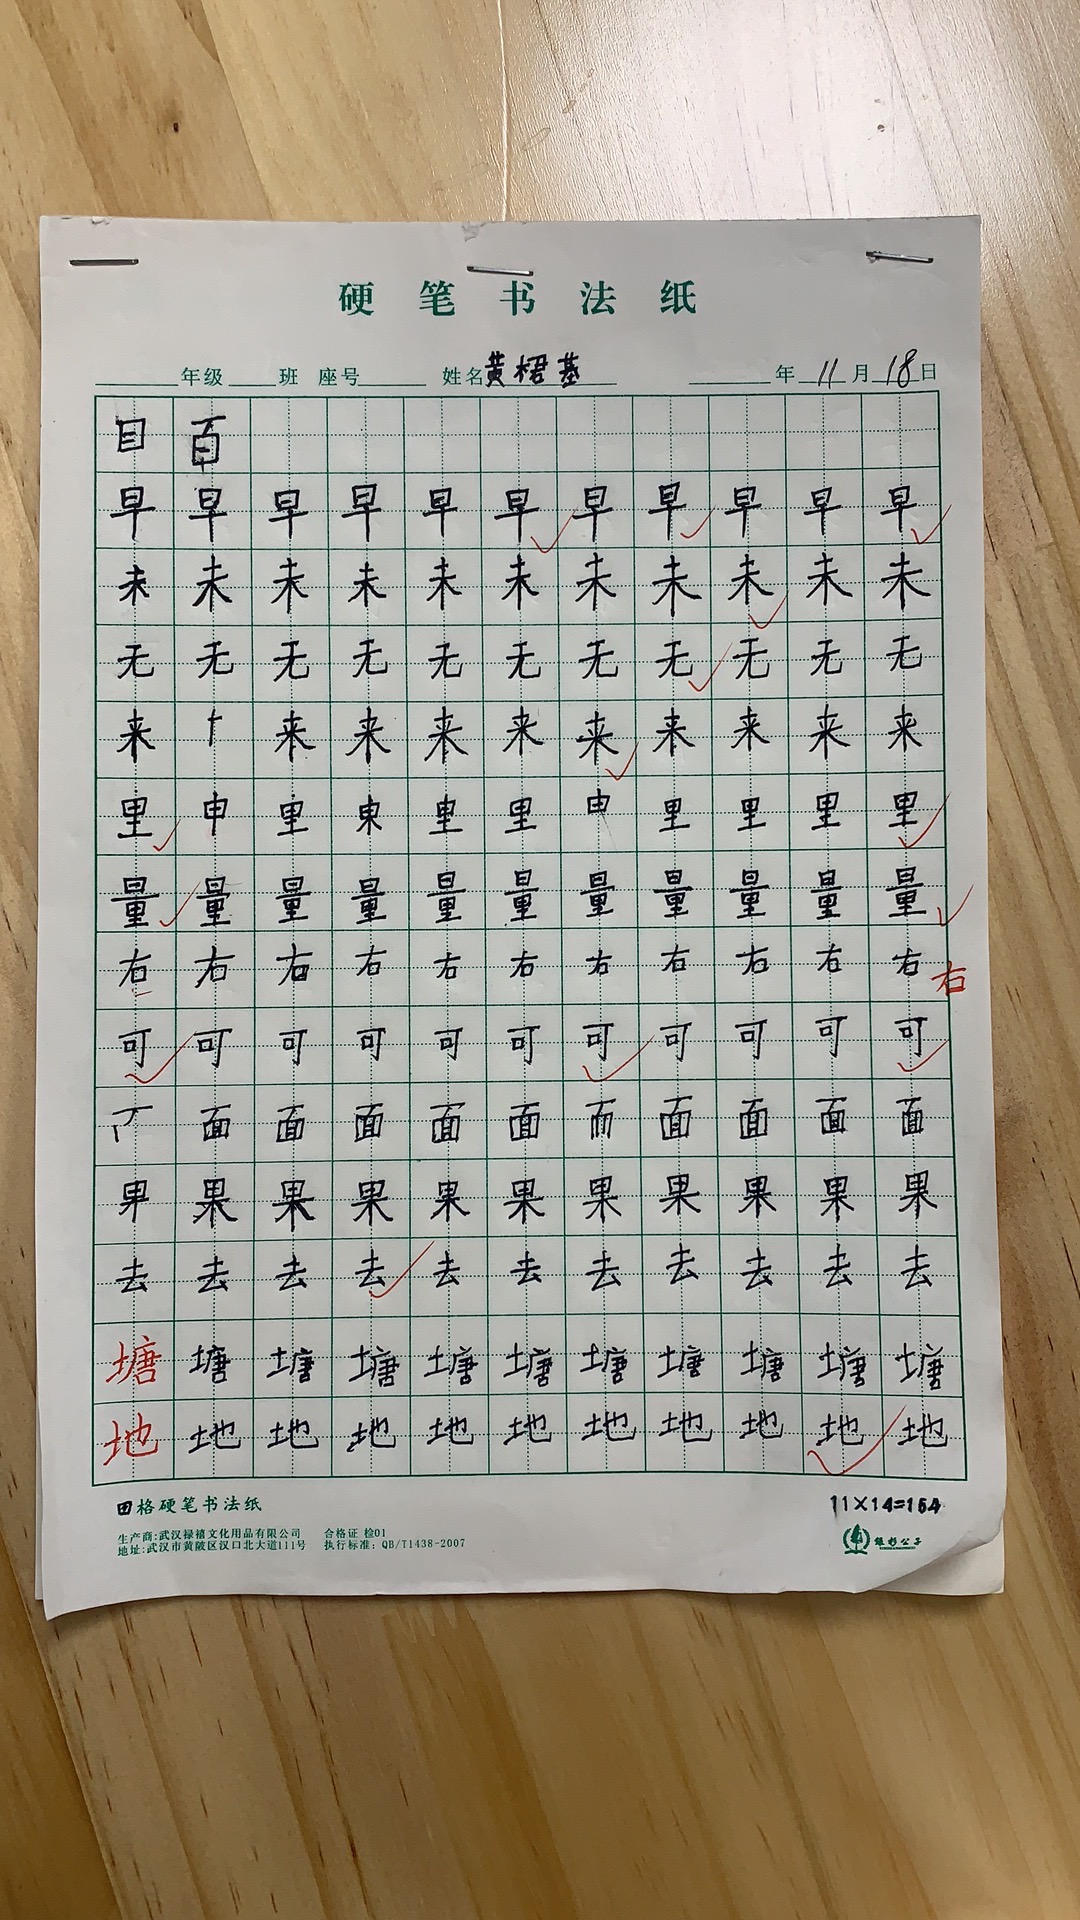 硬笔书法纸
年级 班 座号 姓名黄桾基 年11月18日
目百
早早早早早早早早早早早
未未未未未未未未未未未
无无无无无无无无无无无
来来来来来来来来来来
里申里東里里申里里里里
量量量量量量量量量量量
右右右右右右右右右右右右
可可可可可可可可可可可
面面面面面而面面面面
果果果果果果果果果果
去去去去去去去去去去去
塘塘塘塘塘塘塘塘塘塘塘
地地地地地地地地地地地
田格硬笔书法纸 11×14=154
生产商:武汉禄禧文化用品有限公司 合格证 检01
地址:武汉市黄陂区汉口北大道111号 执行标准:QB/T1438-2007